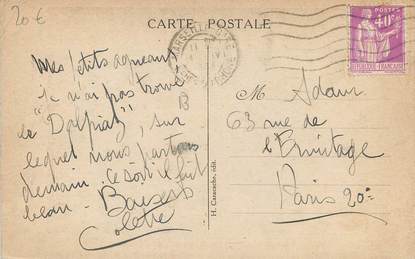 20 €
CARTE POSTALE
POSTES
40c
RÉPUBLIQUE FRANÇAISE
MARSEILLE GARE
Mes petits agneaux
Je n'ai pas trouvé
le "Dalpiaz", sur
lequel nous partons
demain - ce soir il fait
beau - Baisers
Colette
B
H. édit.
M Adam
63 rue de
l'Ermitage
Paris 20e